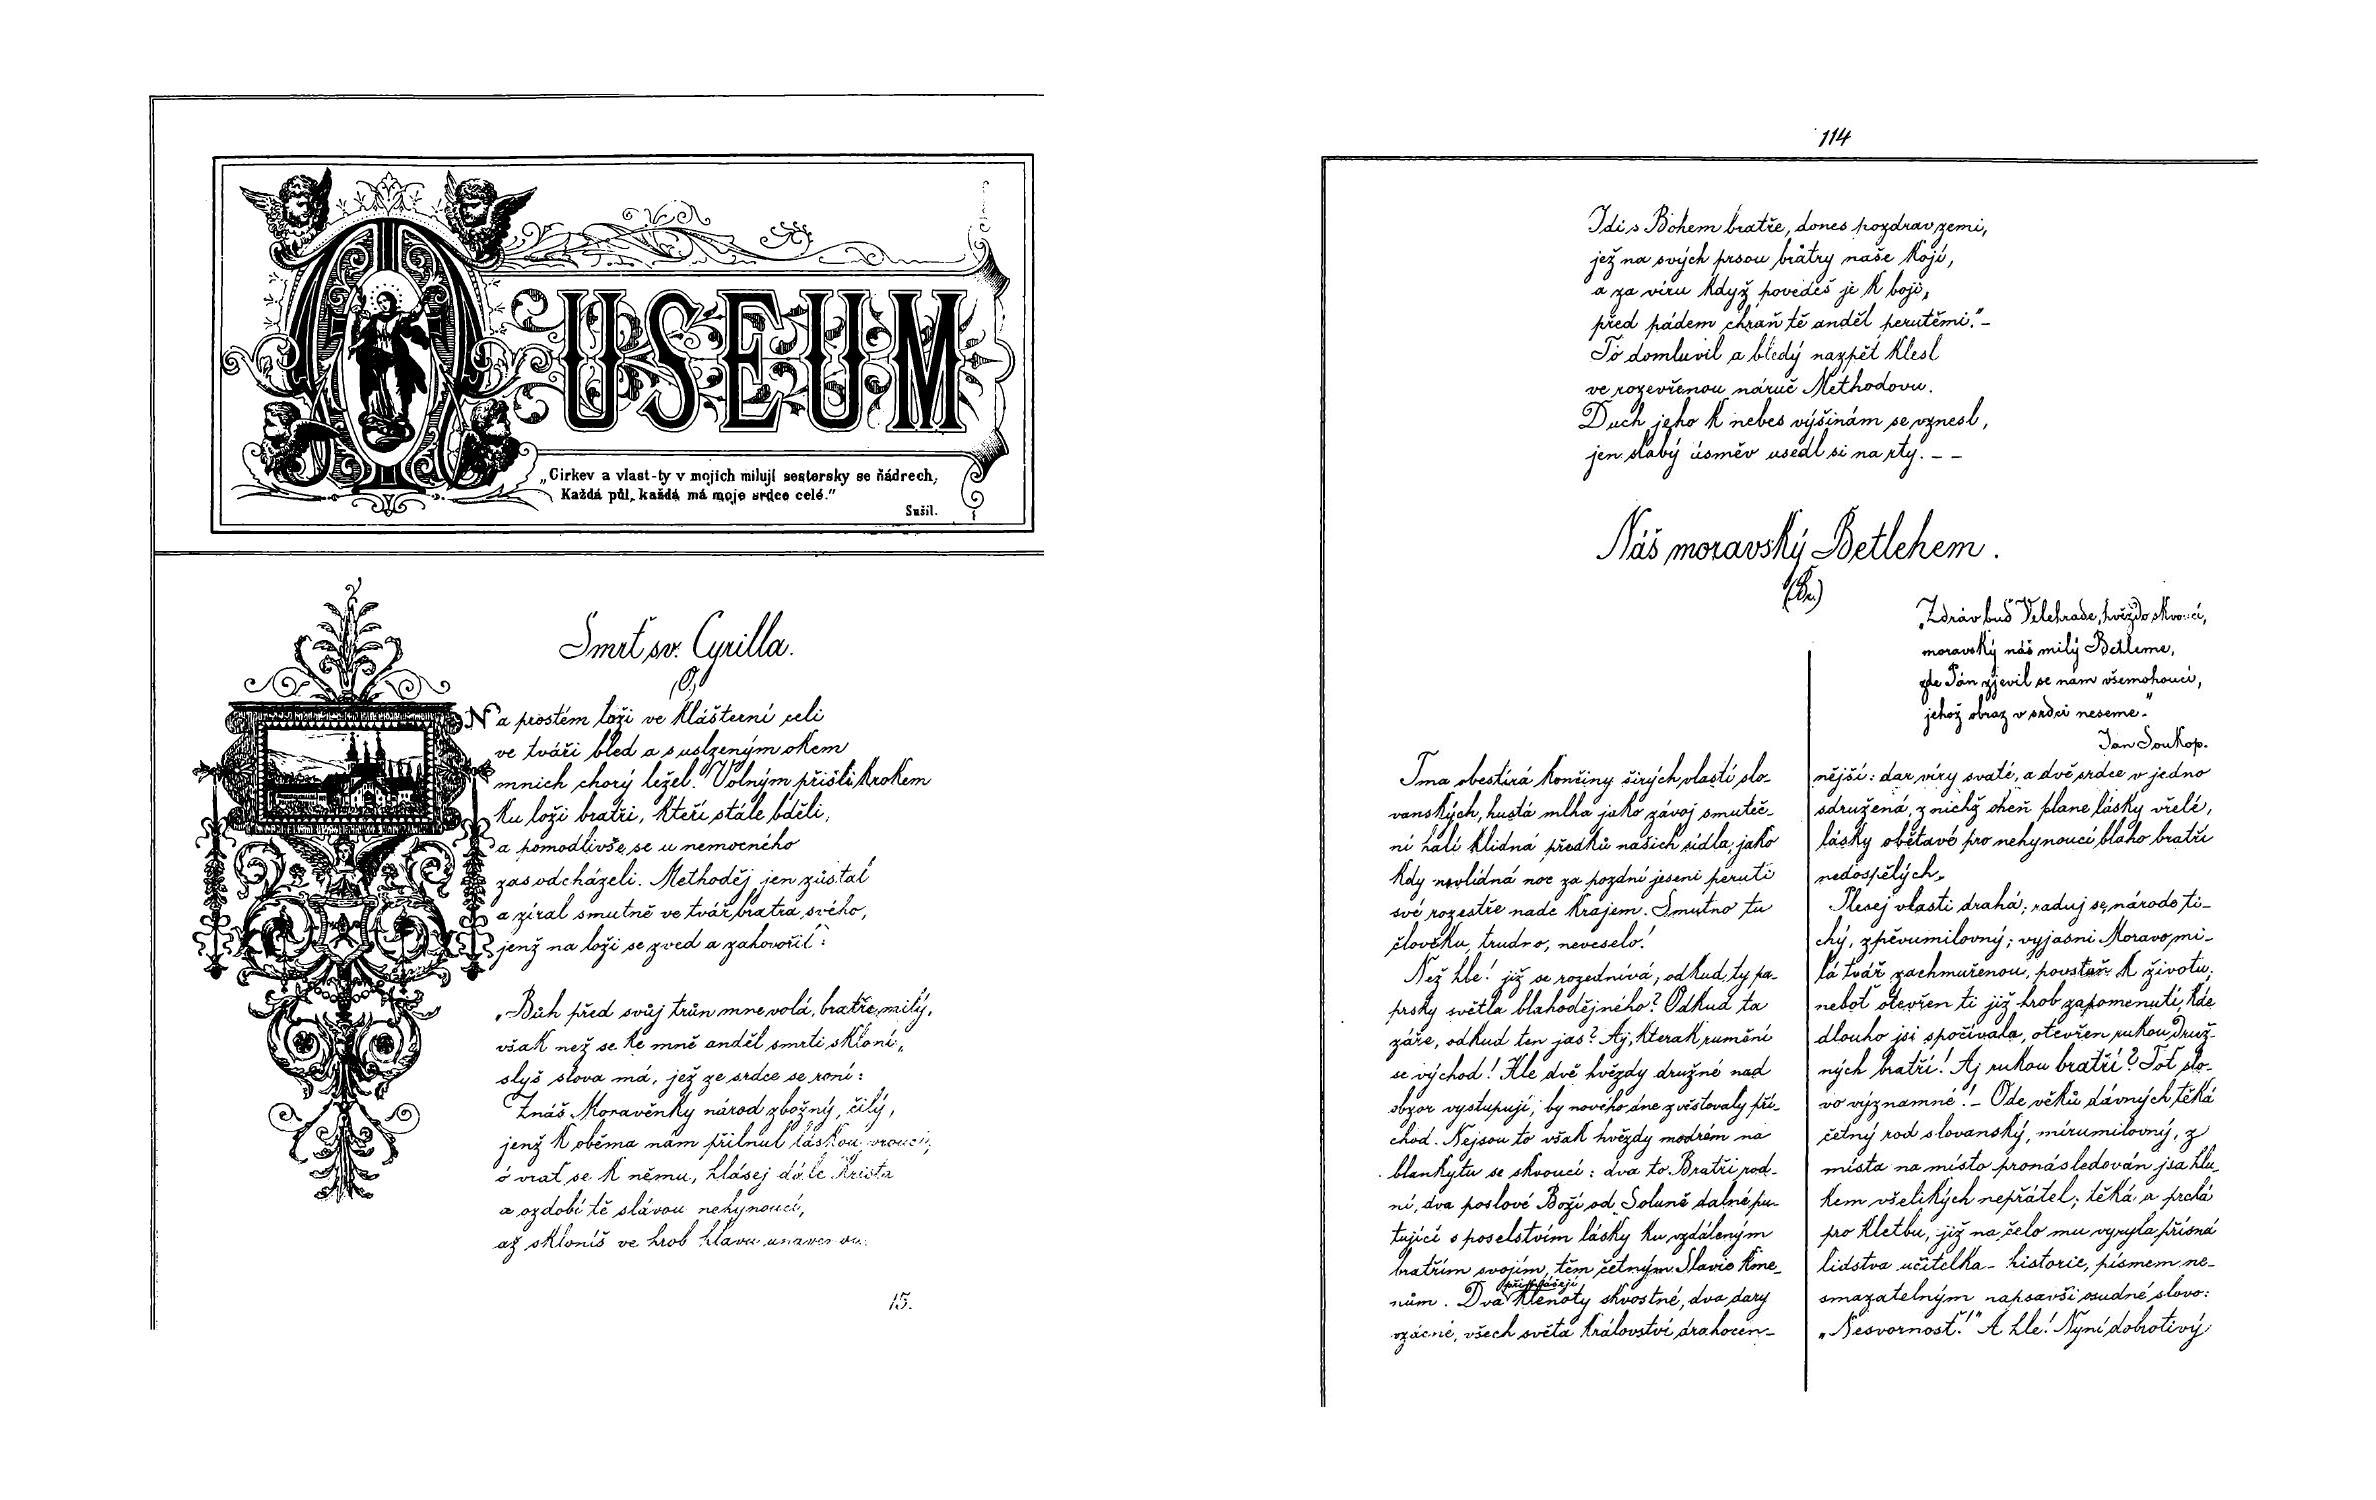 MUSEUM
„Církev a vlast-ty v mojich milují sestersky se ňádrech,
Každá půl, každá má moje srdce celé.“
Sušil.
Smrť sv. Cyrilla.
Na prostém loži ve klášterní celi
ve tváři bled a s uslzeným okem
mnich chorý ležel. Volným přišli krokem
ku loži bratři, kteří stále bděli,
a pomodlivše se u nemocného
zas odcházeli. Methoděj jen zůstal
a zíral smutně ve tvář bratra svého,
jenž na loži se zved a zahovořil:
„Bůh před svůj trůn mne volá, bratře milý,
však než se ke mně anděl smrti skloní,
slyš slova má, jež ze srdce se roní:
Znáš Moravěnky národ zbožný, čilý,
jenž k oběma nám přilnul láskou vroucí,
ó vrať se k němu, hlásej dále Krista
a ozdobí tě slávou nehynoucí,
až skloníš ve hrob hlavu
15.
114
Idi s Bohem bratře, dones pozdrav zemi,
jež na svých prsou brátry naše kojí,
a za víru když povedeš je k boji,
před pádem chraň tě anděl perutěmi.“ –
To domluvil a bledý nazpět klesl
ve rozevřenou náruč Methodovu.
Duch jeho k nebes výšinám se vznesl,
jen slabý úsměv usedl si na rty. – –
Náš moravský Betlehem.
„Zdráv buď Velehrade, hvězdo skvoucí,
moravský náš milý Betleme,
zde Pán zjevil se nám všemohoucí,
jehož obraz v srdci neseme.“
Jan Soukop.
Tma obestírá končiny širých vlastí slo-
vanských, hustá mlha jako závoj smuteč-
ní halí klidná předků našich sídla, jako
kdy nevlídná noc za pozdní jeseni peruti
své rozestře nade krajem. Smutno tu
člověku, trudno, neveselo!
Než hle! již se rozednívá; odkud, ty pa-
prsky světla blahodějného? Odkud ta
záře, odkud ten jas? Aj, kterak rumění
se východ! Hle dvě hvězdy družné nad
obzor vystupují, by nového dne zvěstovaly pří-
chod. Nejsou to však hvězdy modrém na
blankytu se skvoucí: dva to Bratři rod-
ní, dva poslové Boží od Soluně dalné pu-
tující s poselstvím lásky ku vzdáleným
bratřím svojím, těm četným Slavie kme-
přinášejí
nům. Dva klenoty skvostné, dva dary
vzácné, všech světa království drahocen-
nější: dar víry svaté, a dvě srdce v jedno
sdružená, z nichž oheň plane lásky vřelé,
lásky obětavé pro nehynoucí bláho bratří
nedospělých.
Plesej vlasti drahá; raduj se, národe ti-
chý, zpěvumilovný; vyjasni Moravo mi-
lá tvář zachmuřenou, povstaň k životu;
neboť otevřen ti již hrob zapomenutí, kde
dlouho jsi spočívala, otevřen rukou druž-
ných bratří! Aj rukou bratří? Toť slo-
vo významné! – Ode věků dávných těká
četný rod slovanský, mírumilovný, z
místa na místo pronásledován jsa hlu-
kem všelikých nepřátel; těká a prchá
pro kletbu, již na čelo mu vyryla přísná
lidstva učitelka – historie, písmem ne-
smazatelným napsavši osudné slovo:
„Nesvornosť!“ A hle! Nyní dobrotivý